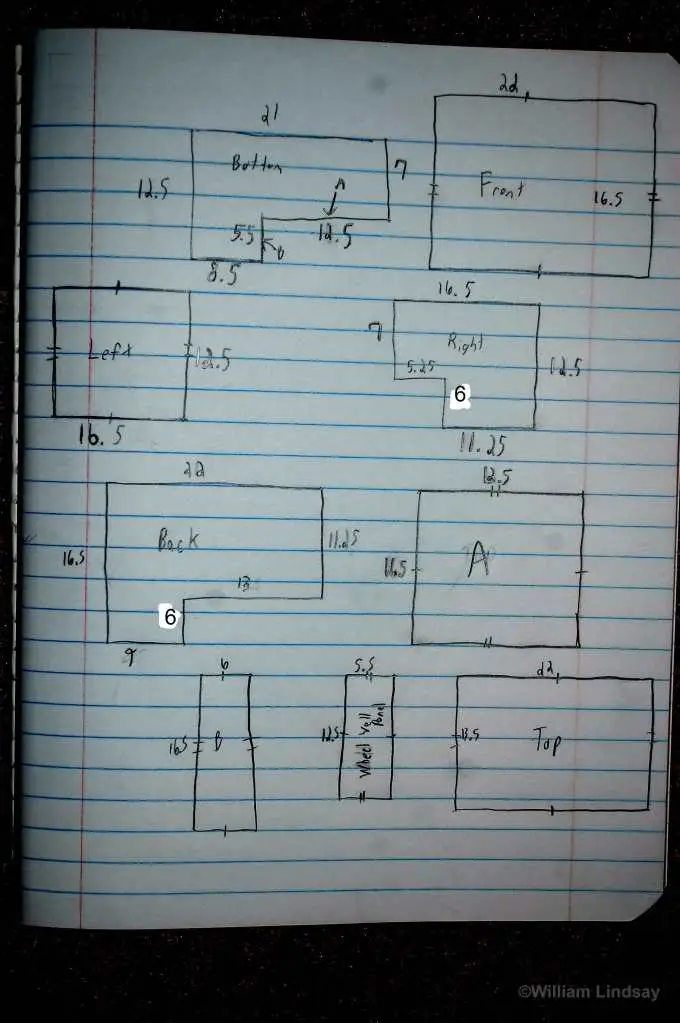 21
Bottom
12.5
7
A
5.5
12.5
B
8.5
22
Front
16.5
Left
12.5
16.5
16.5
7
Right
5.25
12.5
6
11.25
22
Back
16.5
11.25
13
6
9
12.5
A
16.5
6
16.5
B
5.5
12.5
Wheel Well
Panel
22
13.5
Top
©William Lindsay